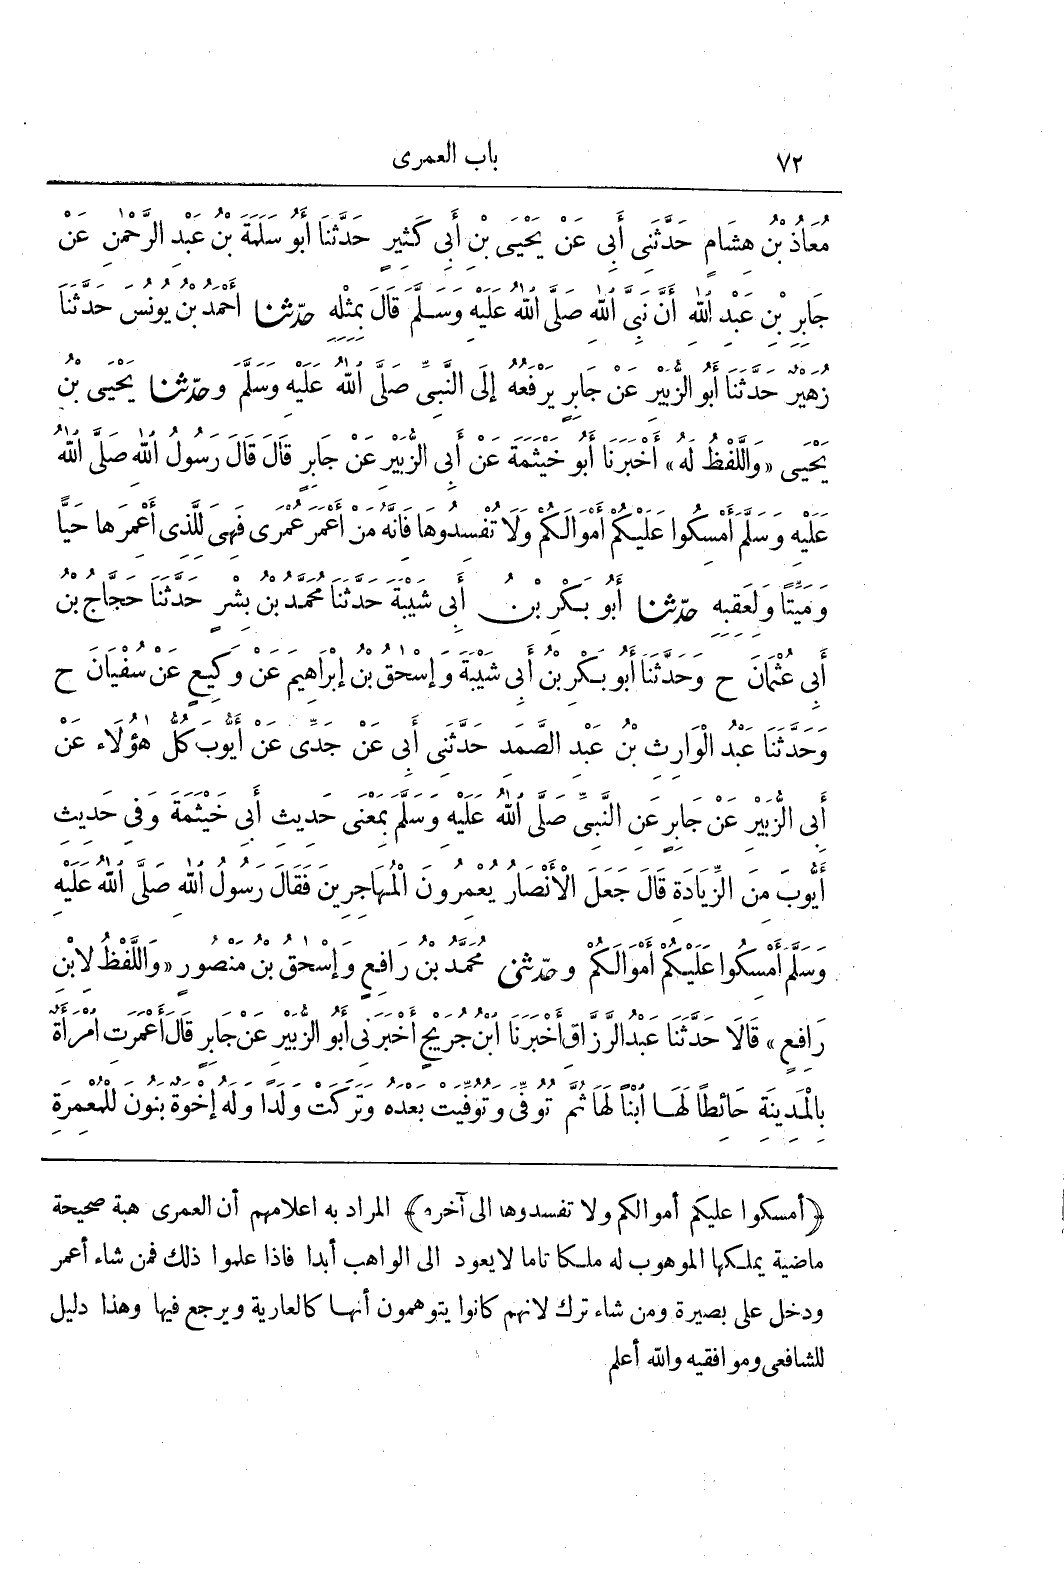 ٧٢
باب العمرى
مُعَاذُ بْنُ هِشَامٍ حَدَّثَنِي أَبِي عَنْ يَحْيَى بْنِ أَبِي كَثِيرٍ حَدَّثَنَا أَبُو سَلَمَةَ بْنُ عَبْدِ الرَّحْمٰنِ عَنْ
جَابِرِ بْنِ عَبْدِ اللهِ أَنَّ نَبِيَّ اللهِ صَلَّى اللهُ عَلَيْهِ وَسَلَّمَ قَالَ بِمِثْلِهِ حدّثنا أَحْمَدُ بْنُ يُونُسَ حَدَّثَنَا
زُهَيْرٌ حَدَّثَنَا أَبُو الزُّبَيْرِ عَنْ جَابِرٍ يَرْفَعُهُ إِلَى النَّبِيِّ صَلَّى اللهُ عَلَيْهِ وَسَلَّمَ وحدّثنا يَحْيَى بْنُ
يَحْيَى «وَاللَّفْظُ لَهُ» أَخْبَرَنَا أَبُو خَيْثَمَةَ عَنْ أَبِي الزُّبَيْرِ عَنْ جَابِرٍ قَالَ قَالَ رَسُولُ اللهِ صَلَّى اللهُ
عَلَيْهِ وَسَلَّمَ أَمْسِكُوا عَلَيْكُمْ أَمْوَالَكُمْ وَلَا تُفْسِدُوهَا فَإِنَّهُ مَنْ أَعْمَرَ عُمْرَى فَهِيَ لِلَّذِي أُعْمِرَهَا حَيًّا
وَمَيِّتًا وَلِعَقِبِهِ حدّثنا أَبُو بَكْرِ بْنُ أَبِي شَيْبَةَ حَدَّثَنَا مُحَمَّدُ بْنُ بِشْرٍ حَدَّثَنَا حَجَّاجُ بْنُ
أَبِي عُثْمَانَ ح وَحَدَّثَنَا أَبُو بَكْرِ بْنُ أَبِي شَيْبَةَ وَإِسْحٰقُ بْنُ إِبْرَاهِيمَ عَنْ وَكِيعٍ عَنْ سُفْيَانَ ح
وَحَدَّثَنَا عَبْدُ الْوَارِثِ بْنُ عَبْدِ الصَّمَدِ حَدَّثَنِي أَبِي عَنْ جَدِّي عَنْ أَيُّوبَ كُلُّ هٰؤُلَاءِ عَنْ
أَبِي الزُّبَيْرِ عَنْ جَابِرٍ عَنِ النَّبِيِّ صَلَّى اللهُ عَلَيْهِ وَسَلَّمَ بِمَعْنَى حَدِيثِ أَبِي خَيْثَمَةَ وَفِي حَدِيثِ
أَيُّوبَ مِنَ الزِّيَادَةِ قَالَ جَعَلَ الْأَنْصَارُ يُعْمِرُونَ الْمُهَاجِرِينَ فَقَالَ رَسُولُ اللهِ صَلَّى اللهُ عَلَيْهِ
وَسَلَّمَ أَمْسِكُوا عَلَيْكُمْ أَمْوَالَكُمْ وحدّثني مُحَمَّدُ بْنُ رَافِعٍ وَإِسْحٰقُ بْنُ مَنْصُورٍ «وَاللَّفْظُ لِابْنِ
رَافِعٍ» قَالَا حَدَّثَنَا عَبْدُ الرَّزَّاقِ أَخْبَرَنَا ابْنُ جُرَيْجٍ أَخْبَرَنِي أَبُو الزُّبَيْرِ عَنْ جَابِرٍ قَالَ أَعْمَرَتِ امْرَأَةٌ
بِالْمَدِينَةِ حَائِطًا لَهَا ابْنًا لَهَا ثُمَّ تُوُفِّيَ وَتُوُفِّيَتْ بَعْدَهُ وَتَرَكَتْ وَلَدًا وَلَهُ إِخْوَةٌ بَنُونَ لِلْمُعْمِرَةِ
﴿أمسكوا عليكم أموالكم ولا تفسدوها الى آخره﴾ المراد به اعلامهم أن العمرى هبة صحيحة
ماضية يملكها الموهوب له ملكا تاما لا يعود الى الواهب أبدا فاذا علموا ذلك فمن شاء أعمر
ودخل على بصيرة ومن شاء ترك لانهم كانوا يتوهمون أنها كالعارية ويرجع فيها وهذا دليل
للشافعى وموافقيه والله أعلم